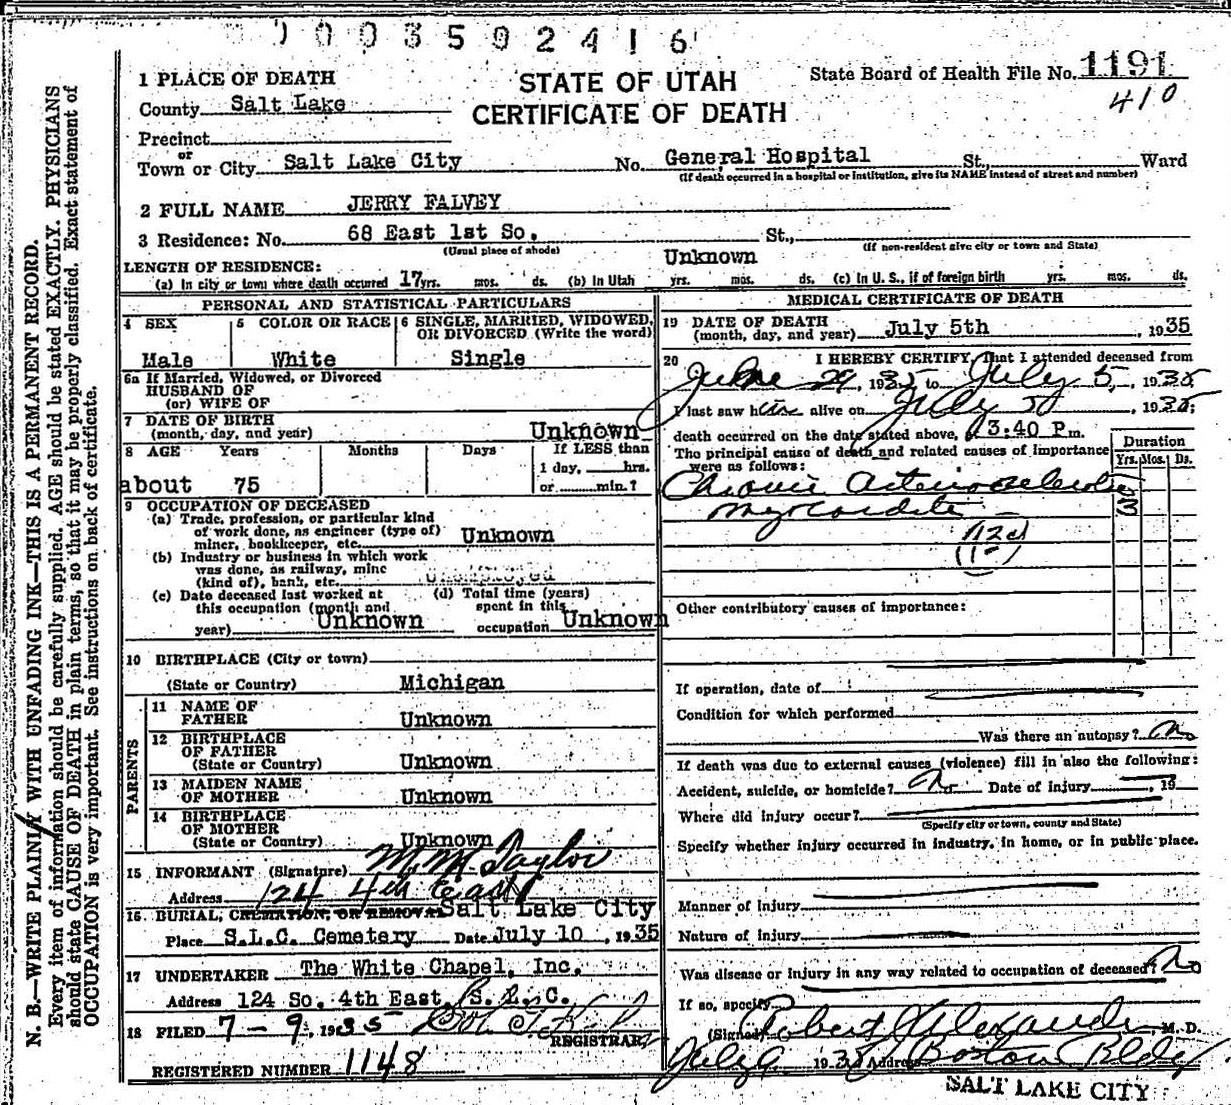 1003502416
1 PLACE OF DEATH
STATE OF UTAH
CERTIFICATE OF DEATH
State Board of Health File No. 1191
410
County Salt Lake
Precinct
or
Town or City Salt Lake City No. General Hospital St., Ward
(If death occurred in a hospital or institution, give its NAME instead of street and number)
2 FULL NAME JERRY FALVEY
3 Residence: No. 68 East 1st So. St.,
(Usual place of abode) (If non-resident give city or town and State)
LENGTH OF RESIDENCE: Unknown
(a) In city or town where death occurred 17 yrs. mos. ds. (b) In Utah yrs. mos. ds. (c) In U. S., if of foreign birth yrs. mos. ds.
PERSONAL AND STATISTICAL PARTICULARS
4 SEX 5 COLOR OR RACE 6 SINGLE, MARRIED, WIDOWED, OR DIVORCED (Write the word)
Male White Single
6a If Married, Widowed, or Divorced
HUSBAND OF
(or) WIFE OF
7 DATE OF BIRTH
(month, day, and year) Unknown
8 AGE Years Months Days If LESS than
1 day, hrs.
about 75 or min.?
9 OCCUPATION OF DECEASED
(a) Trade, profession, or particular kind
of work done, as engineer (type of)
miner, bookkeeper, etc. Unknown
(b) Industry or business in which work
was done, as railway, mine
(kind of), bank, etc.
(c) Date deceased last worked at (d) Total time (years)
this occupation (month and spent in this
year) Unknown occupation Unknown
10 BIRTHPLACE (City or town)
(State or Country) Michigan
PARENTS
11 NAME OF
FATHER Unknown
12 BIRTHPLACE
OF FATHER
(State or Country) Unknown
13 MAIDEN NAME
OF MOTHER Unknown
14 BIRTHPLACE
OF MOTHER
(State or Country) Unknown
15 INFORMANT (Signature) M. M. Taylor
Address 124 4th East
16. BURIAL, CREMATION, OR REMOVAL Salt Lake City
Place S.L.C. Cemetery Date July 10, 1935
17 UNDERTAKER The White Chapel, Inc.
Address 124 So. 4th East, S. L. C.
18 FILED 7-9, 1935
REGISTRAR
REGISTERED NUMBER 1148
MEDICAL CERTIFICATE OF DEATH
19 DATE OF DEATH
(month, day, and year) July 5th, 1935
20 I HEREBY CERTIFY, That I attended deceased from
June 29, 1935 to July 5, 1935
I last saw him alive on July 5, 1935;
death occurred on the date stated above, 3:40 P m.
The principal cause of death and related causes of importance
were as follows:
Duration
Yrs. Mos. Ds.
Chronic Arteriosclerotic
Myocarditis
Other contributory causes of importance:
If operation, date of
Condition for which performed
Was there an autopsy? No
If death was due to external causes (violence) fill in also the following:
Accident, suicide, or homicide? No Date of injury , 19
Where did injury occur?
(Specify city or town, county and State)
Specify whether injury occurred in industry, in home, or in public place.
Manner of Injury
Nature of Injury
Was disease or injury in any way related to occupation of deceased? No
If so, specify
(Signed) Robert J Alexander, M. D.
July 9, 1935 Address Boston Bldg
SALT LAKE CITY
N. B.—WRITE PLAINLY WITH UNFADING INK—THIS IS A PERMANENT RECORD.
Every item of information should be carefully supplied. AGE should be stated EXACTLY. PHYSICIANS
should state CAUSE OF DEATH in plain terms, so that it may be properly classified. Exact statement of
OCCUPATION is very important. See instructions on back of certificate.